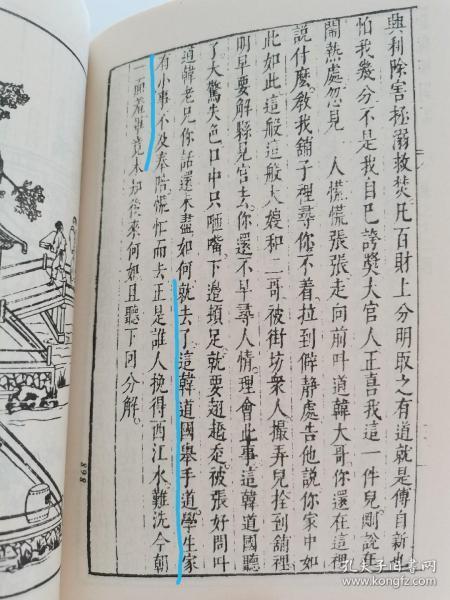 興利除害拯溺救焚凡百財上分明取之有道就是傅自新也
怕我幾分不是我自己誇獎大官人正喜我這一件兒剛說在
鬧熱處忽見 人慌慌張張走向前叫道韓大哥你還在這裡
說什麼教我舖子裡尋你不着拉到僻静處告他說你家中如
此如此這般這般大嫂和二哥被街坊衆人撮弄兒拴到舖裡
明早要解縣見官去你還不早尋人情理會此事這韓道國聽
了大驚失色口中只咂嘴下邊頓足就要翅趫走被張好問叫
道韓老兄你話還未盡如何就去了這韓道國舉手道學生家
有小事不及奉陪慌忙而去正是誰人挽得西江水難洗今朝
一面羞畢竟未知後來何如且聽下回分解
868
孔夫子旧书网